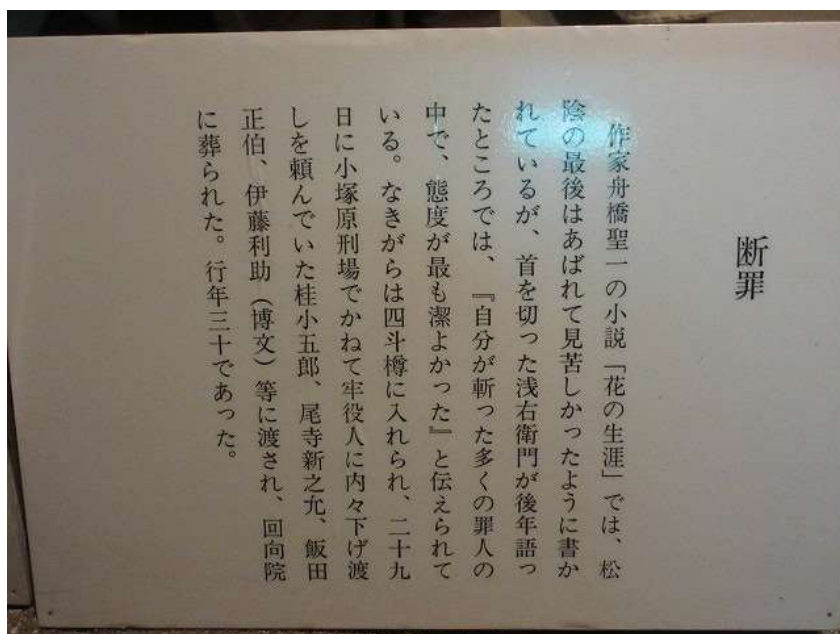 断罪
作家舟橋聖一の小説「花の生涯」では、松
陰の最後はあばれて見苦しかったように書か
れているが、首を切った浅右衛門が後年語っ
たところでは、『自分が斬った多くの罪人の
中で、態度が最も潔よかった』と伝えられて
いる。なきがらは四斗樽に入れられ、二十九
日に小塚原刑場でかねて牢役人に内々下げ渡
しを頼んでいた桂小五郎、尾寺新之允、飯田
正伯、伊藤利助（博文）等に渡され、回向院
に葬られた。行年三十であった。